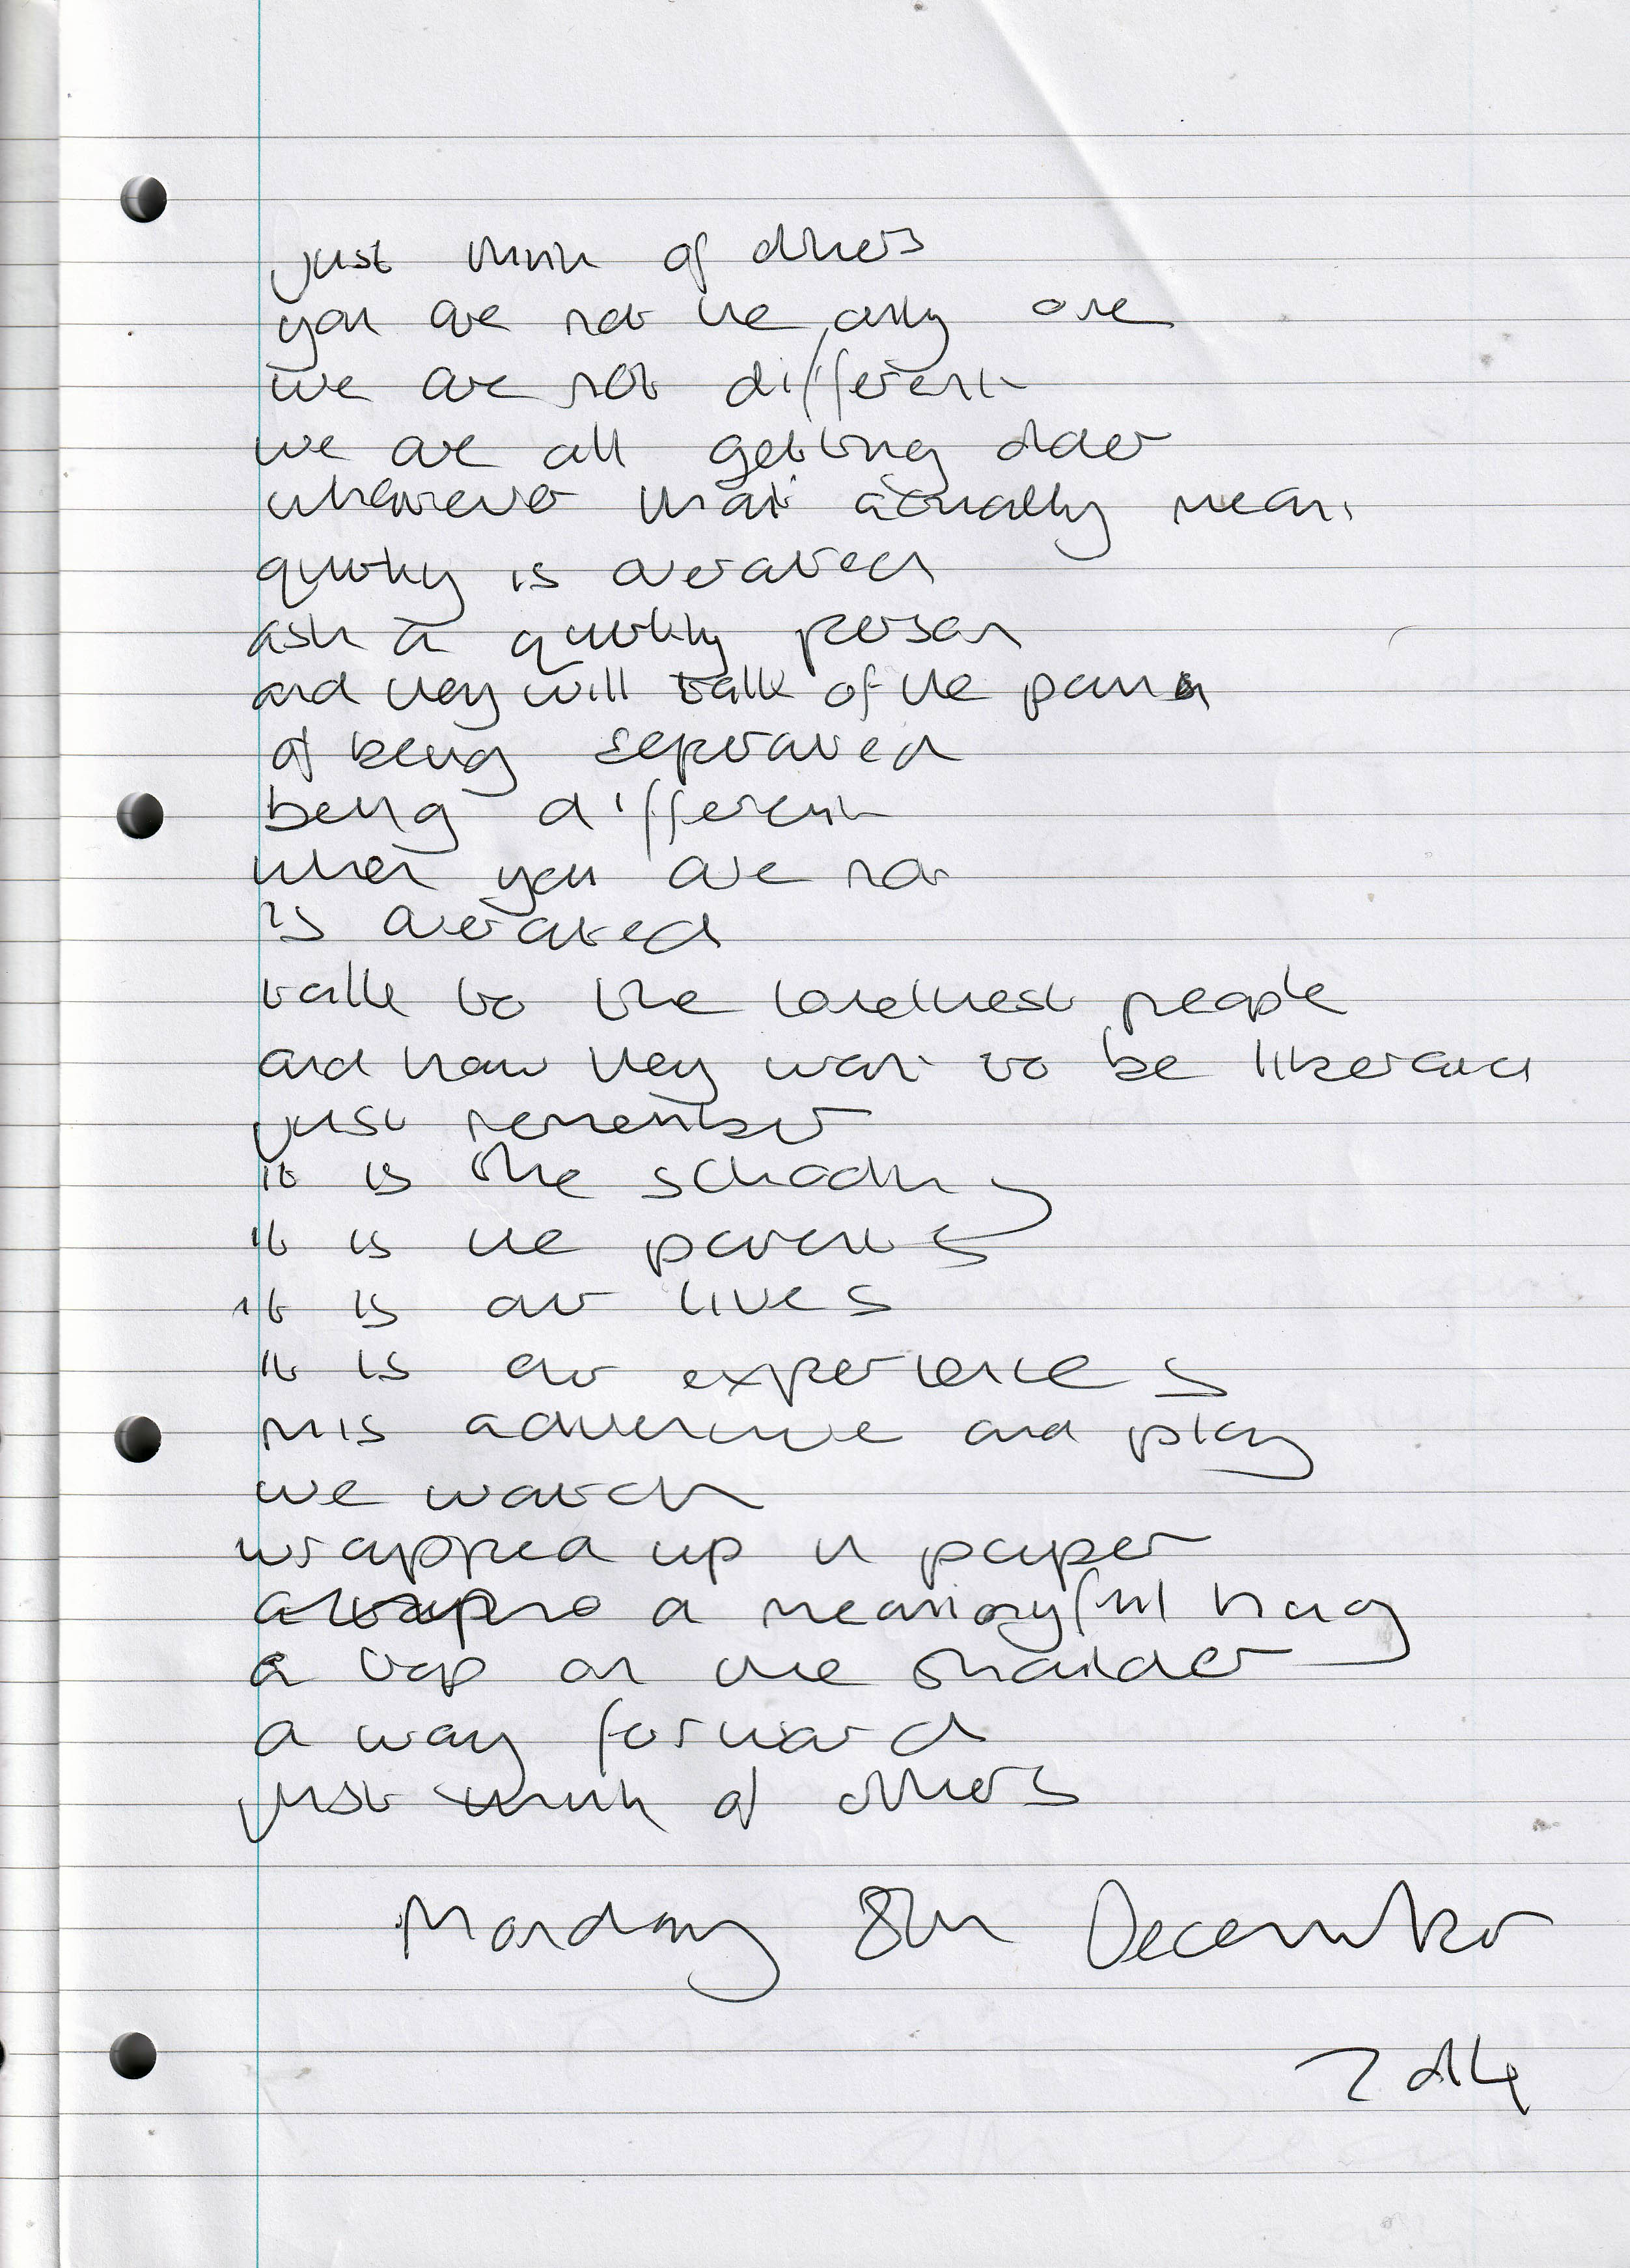 just think of others
you are not the only one
we are not different
we are all getting older
whatever that actually means
quirky is overrated
ask a quirky person
and they will talk of the pain
of being seperated
being different
when you are not
is overrated
talk to the loneliest people
and how they want to be liberated
just remember
it is the schools
it is the parents
it is our lives
it is our experiences
this adventure and play
we watch
wrapped up in paper
a meaningful hug
a tap on the shoulder
a way forward
just think of others
Monday 8th December
2014